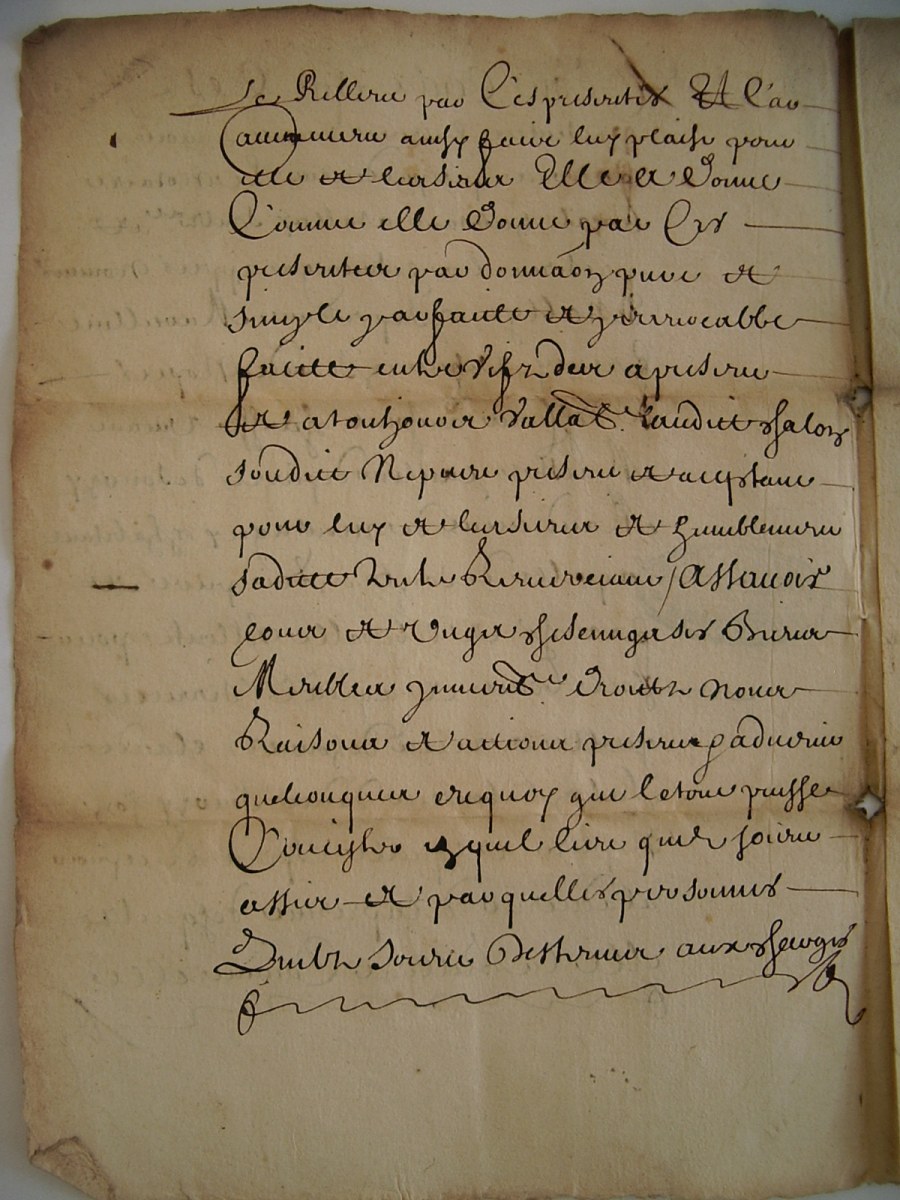 par Ces presentes Et Car
ainsy faire luy plaist pour
elle et les siens Elle a Donne
Comme elle Donne par Ces
presentes par donnaon pure et
simple parfaicte et yrrevocable
faicte entre vifz des a present
Et a tousjours vallable audict
sondict Nepveu present et aceptant
pour luy et les siens et humblement
sadicte tante Remerciant / Assavoir
et ses Biens
Meubles ymeubles droictz noms
Raisons et actions presens advenir
quelconques en quoy que le tout puisse
Consister en quel lieu quilz soient
assis et par quelles personnes
Quilz soient Destenues aux charges